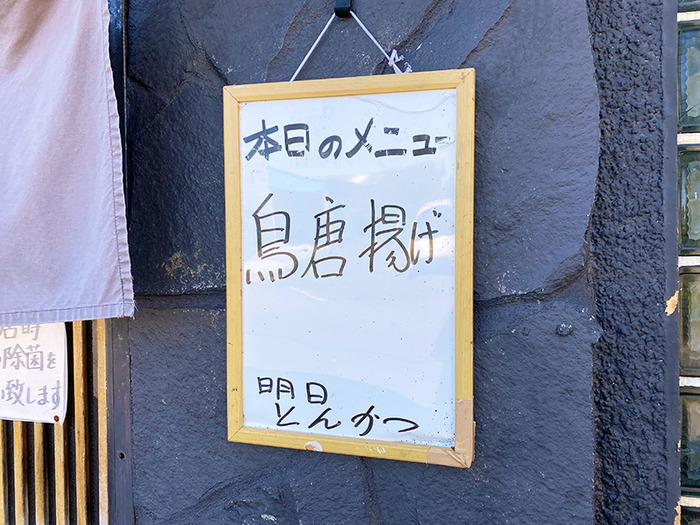 本日のメニュー
鳥唐揚げ
明日
とんかつ
除菌を
致します